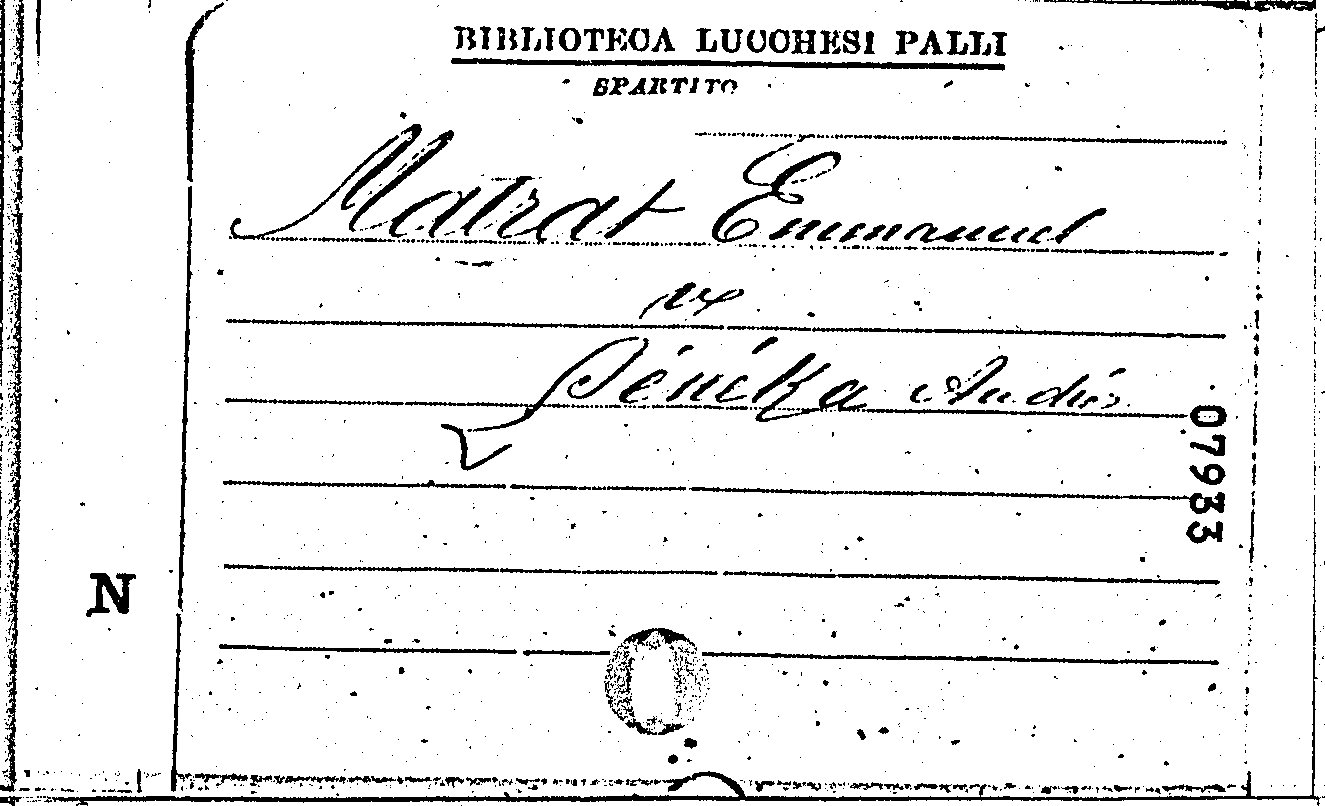 BIBLIOTECA LUCCHESI PALLI
SPARTITO
Matrat Emmanuel
v.
Sénéka Andrés
07933
N